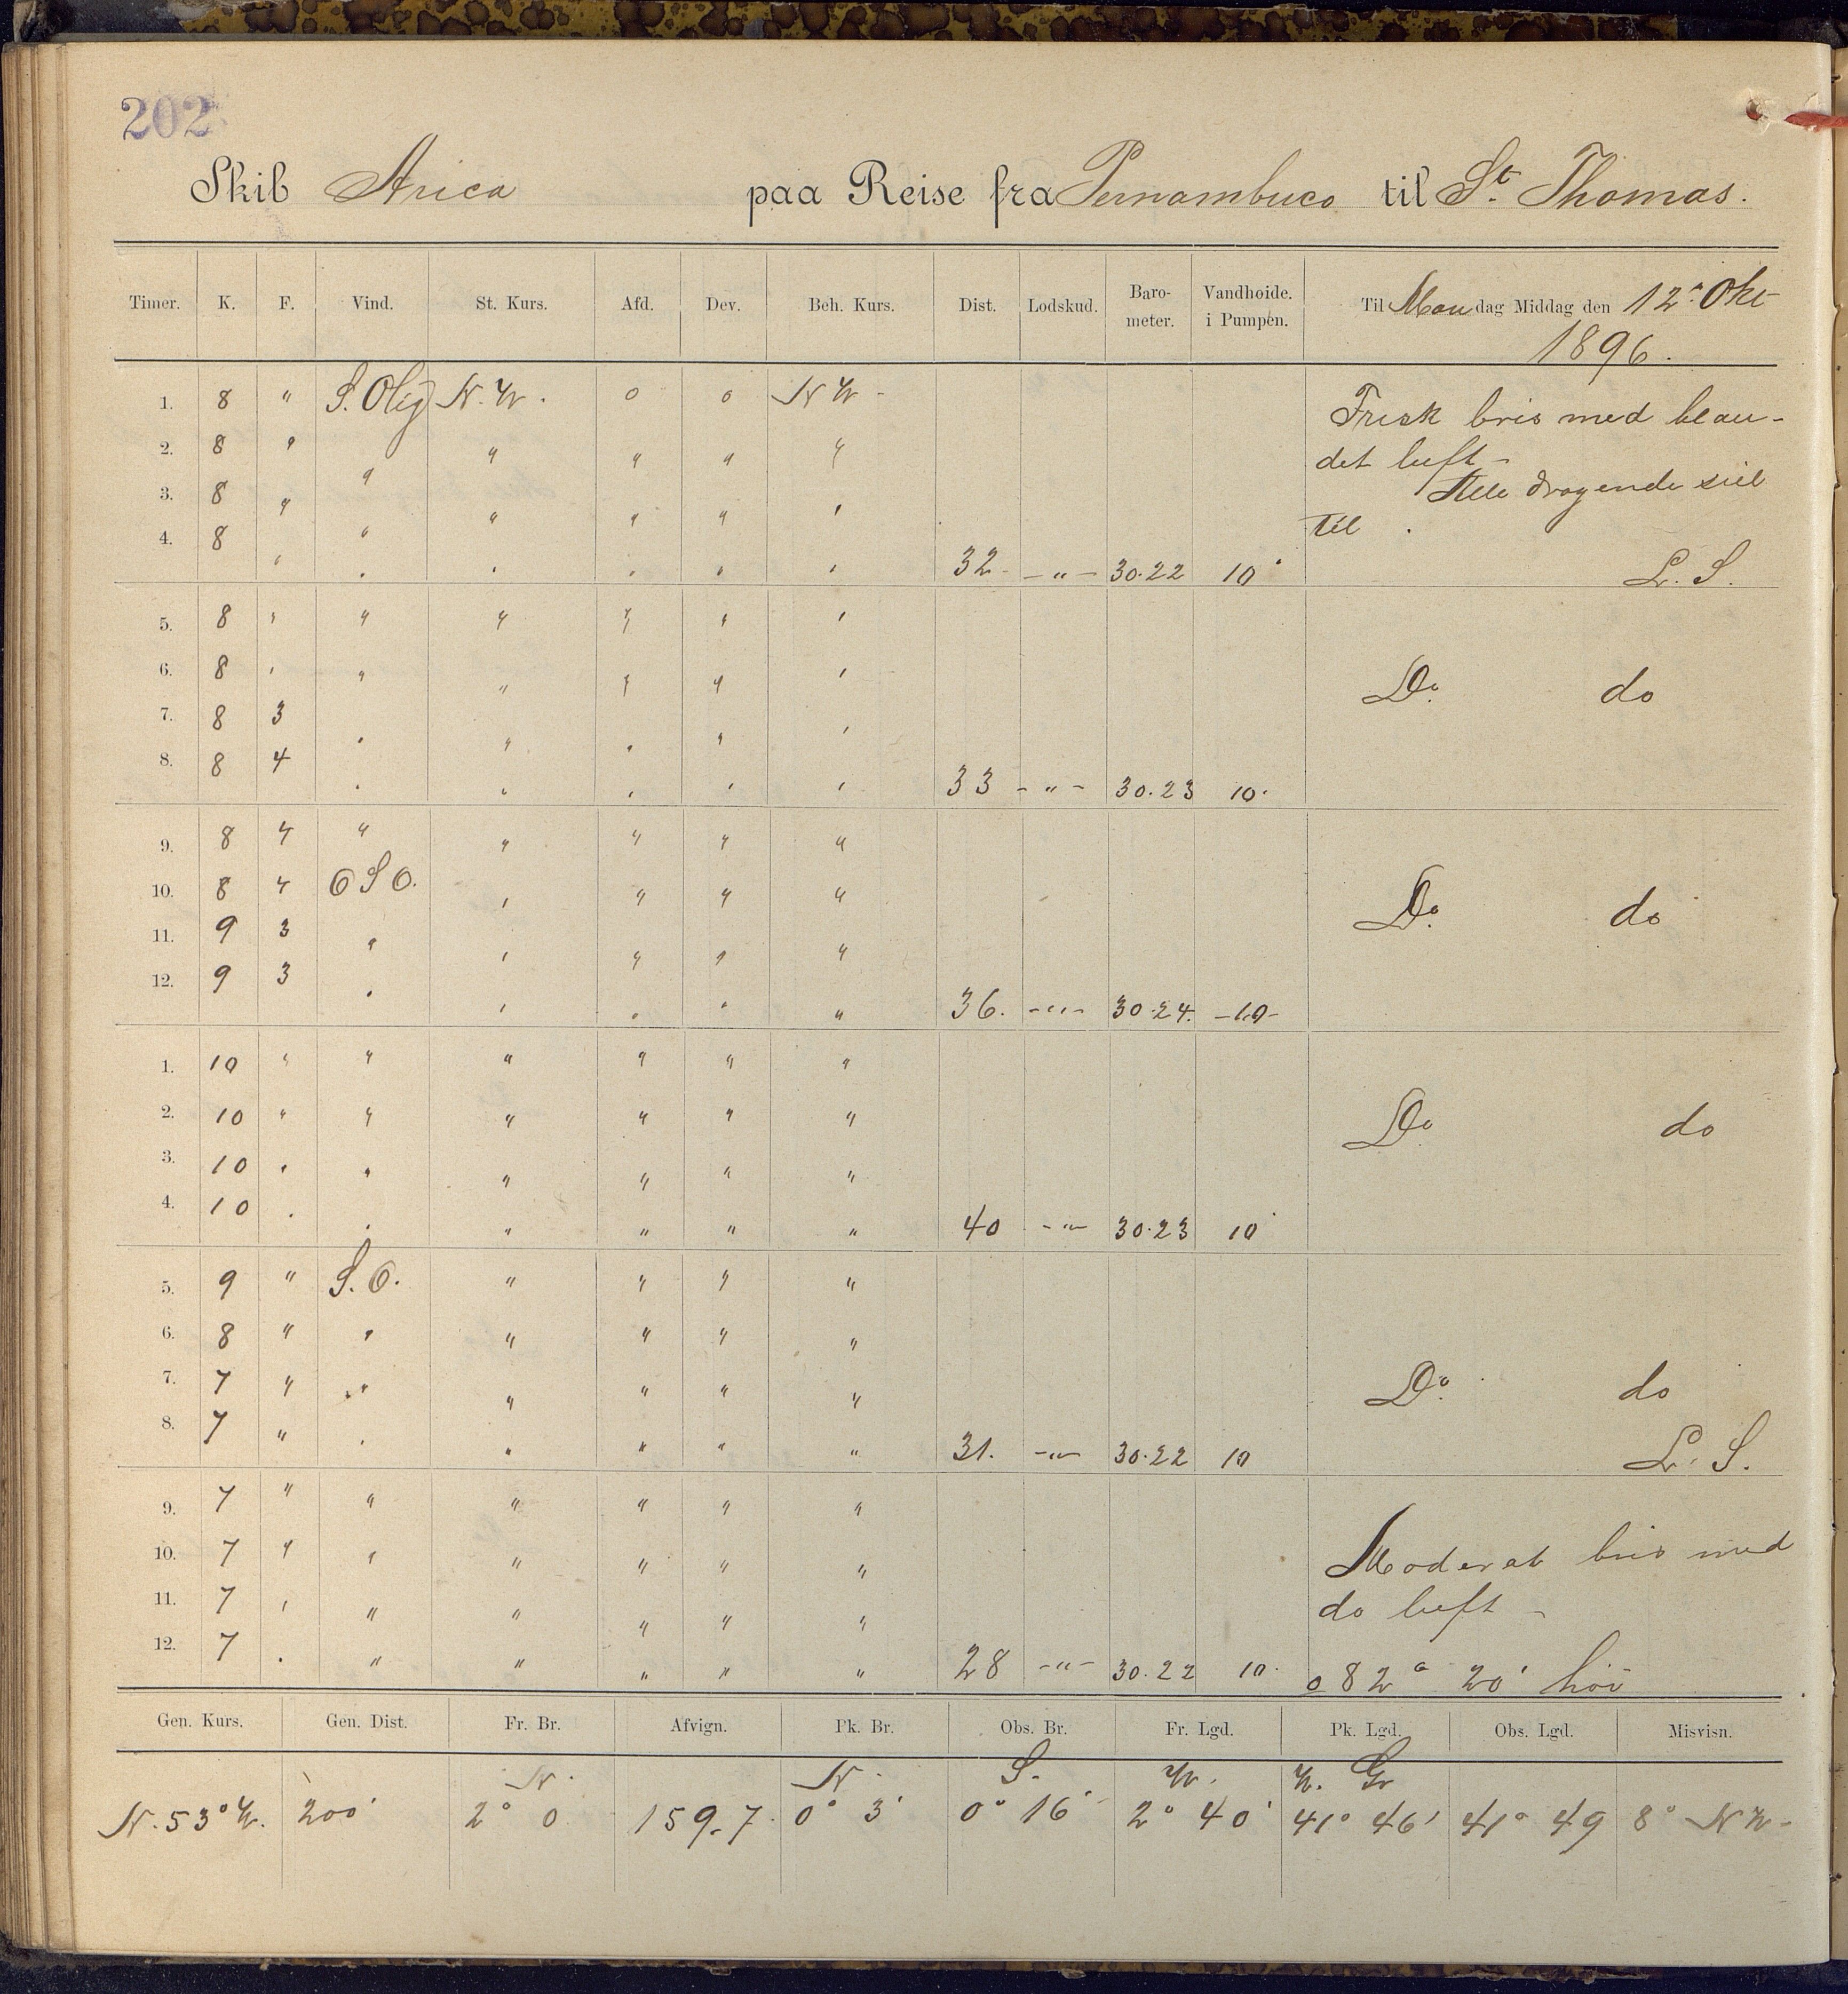 202
Skib Arica paa Reise fra Pernambuco til St. Thomas.
Timer. K. F. Vind. St. Kurs. Afd. Dev. Beh. Kurs. Dist. Lodskud. Baro-meter. Vandhøide. i Pumpen. Til Mandag Middag den 12te Okt 1896.
1. 8 " S. Olig N. W. 0 0 N W - Frisk bris med blan-
2. 8 " " " " " " det luft -
3. 8 " " " " " " Alle dragende siel
4. 8 " " " " " " 32 - " - 30.22 10 til . L. S.
5. 8 " " " " " "
6. 8 " " " " " " Do. do
7. 8 3 " " " " "
8. 8 4 " " " " " 33 - " - 30.23 10.
9. 8 4 " " " " "
10. 8 4 O S O. " " " " Do. do
11. 9 3 " " " " "
12. 9 3 " " " " " 36. - " - 30.24. -10-
1. 10 " " " " " "
2. 10 " " " " " " Do do
3. 10 " " " " " "
4. 10 " " " " " " 40 - " - 30.23 10
5. 9 " S. O. " " " "
6. 8 " " " " " "
7. 7 " " " " " " Do. do
8. 7 " " " " " " 31. - " - 30.22 10 L. S.
9. 7 " " " " " "
10. 7 " " " " " " Moderat bris med
11. 7 " " " " " " do luft -
12. 7 " " " " " " 28 - " - 30.22 10. o 82° 20' høi
Gen. Kurs. Gen. Dist. Fr. Br. Afvign. Pk. Br. Obs. Br. Fr. Lgd. Pk. Lgd. Obs. Lgd. Misvisn.
N. N. S. W. W. Gr
N. 53° W. 200' 2° 0 159.7 0° 3' 0° 16' 2° 40' 41° 46' 41° 49 8° N W -